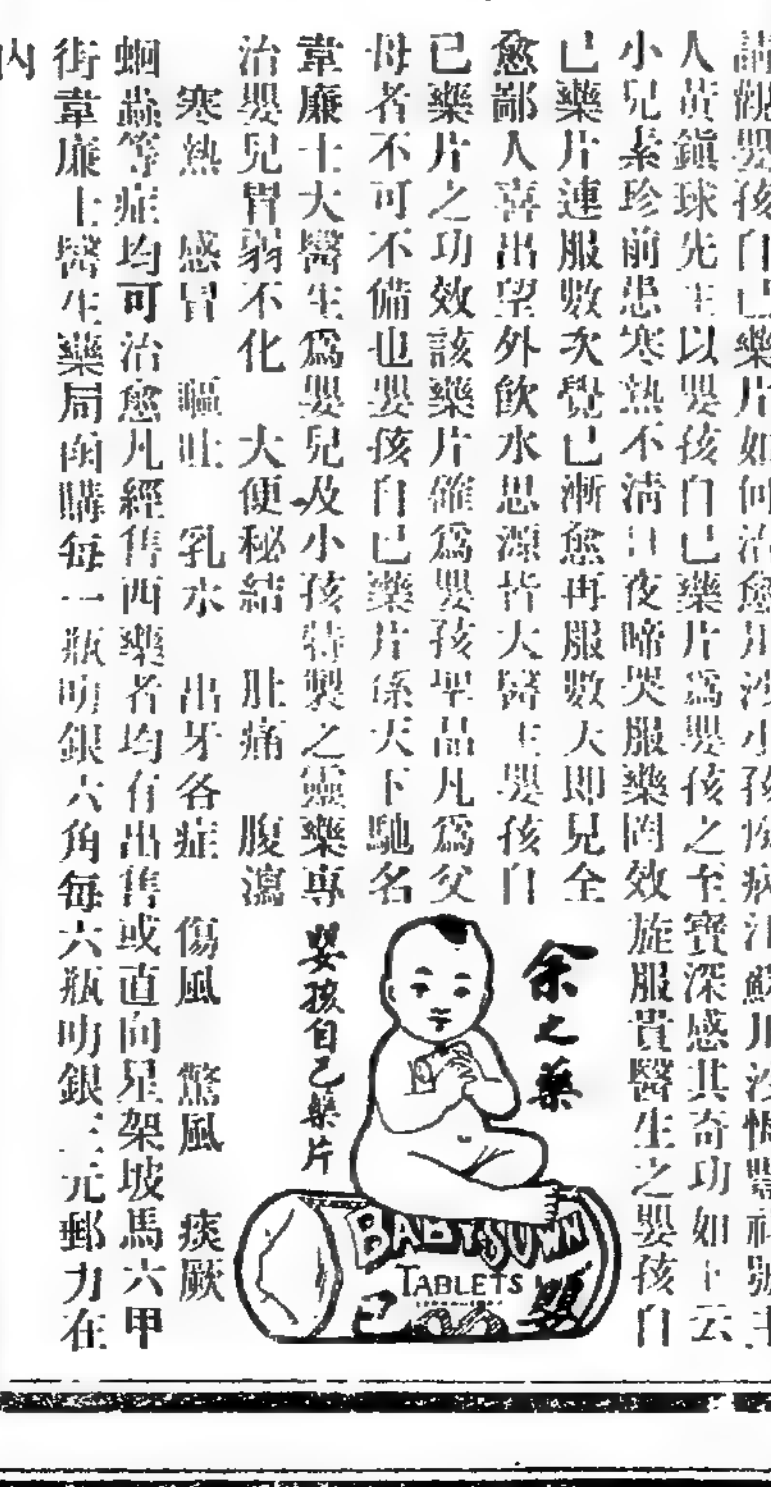 請觀嬰孩自己藥片如何治愈川沙小孩疾病江蘇川沙恆豐祥號主
人黃鎮球先生以嬰孩自己藥片爲嬰孩之至寶深感其奇功如下云
小兒素珍前患寒熱不清日夜啼哭服藥罔效旋服貴醫生之嬰孩自
己藥片連服數次覺已漸愈再服數天即見全
愈鄙人喜出望外飲水思源皆大醫生嬰孩自
己藥片之功效該藥片確爲嬰孩聖品凡爲父
母者不可不備也嬰孩自己藥片係天下馳名
韋廉士大醫生爲嬰兒及小孩特製之靈藥專
治嬰兒胃弱不化 大便秘結 肚痛 腹瀉
寒熱 感冒 嘔吐 乳水 出牙各症 傷風 驚風 痰厥
蛔蟲等症均可治愈凡經售西藥者均有出售或直向星架坡馬六甲
街韋廉士醫生藥局函購每一瓶叻銀六角每六瓶叻銀三元郵力在
內
余之藥
嬰孩自己藥片
BABY'S OWN
TABLETS
嬰
己